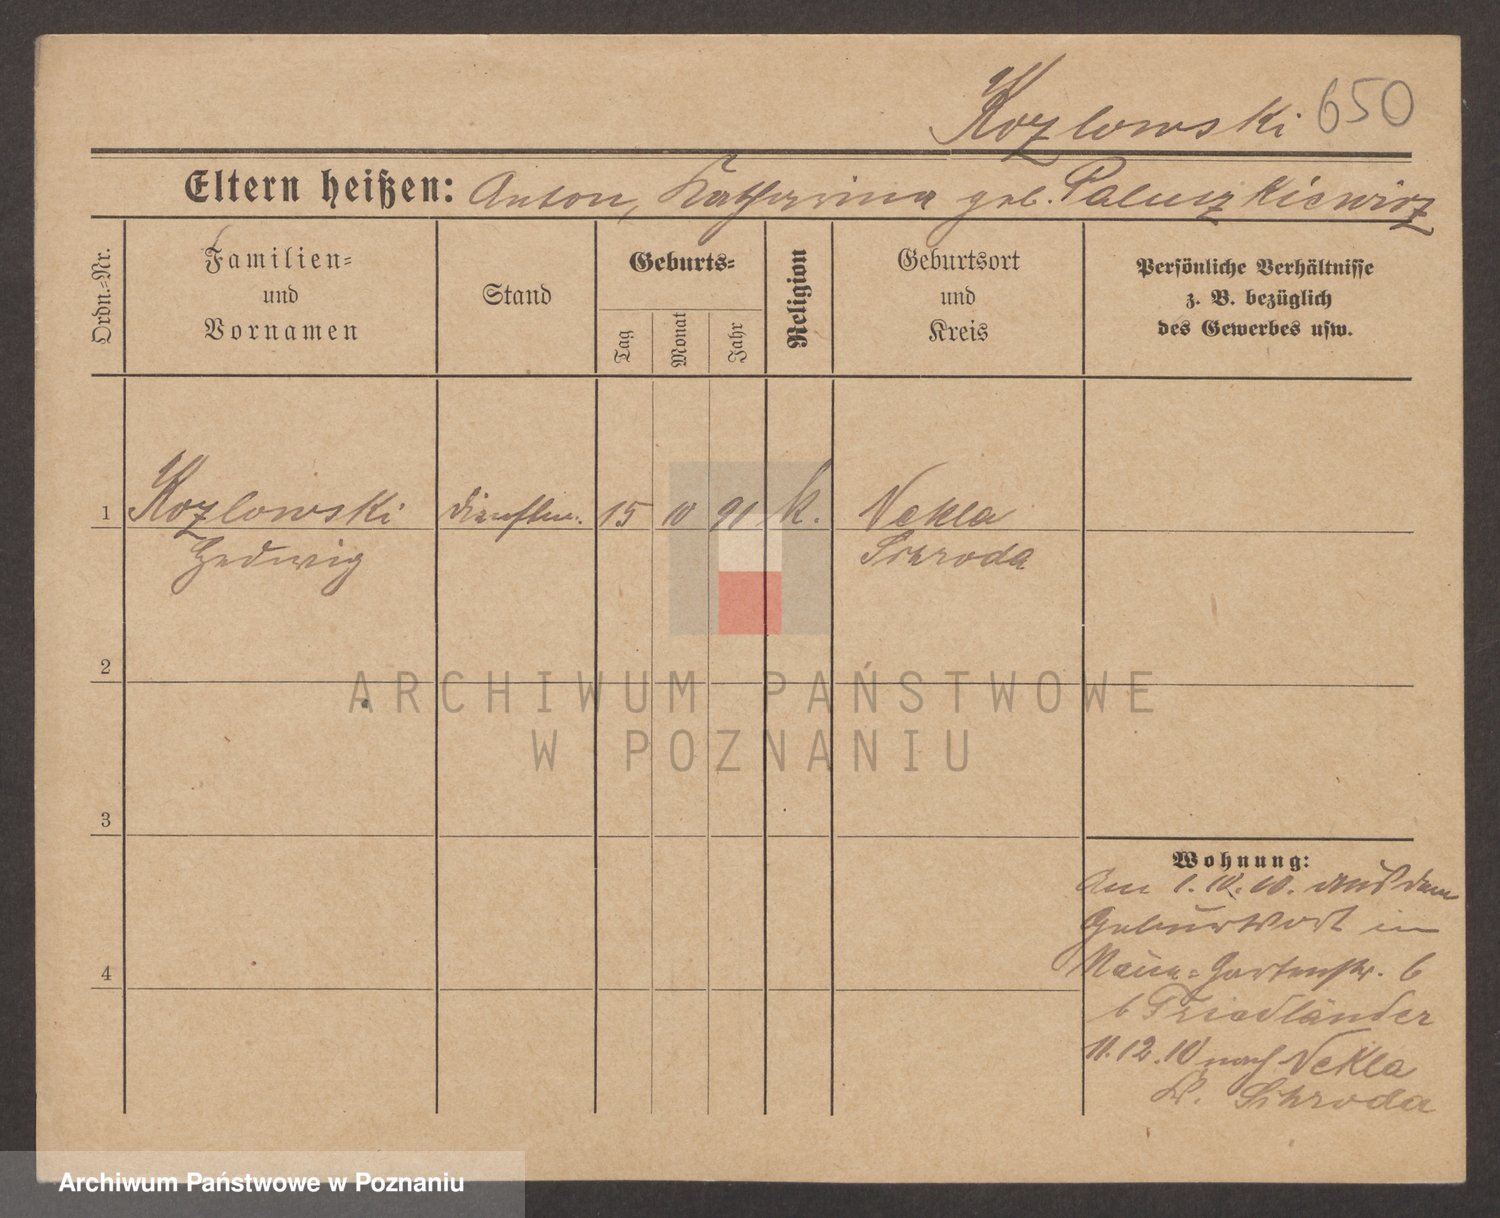 Kozlowski 650
Eltern heißen: Anton, Katharina geb. Paluszkiewicz
Ordn.-Nr.
Familien-
und
Vornamen
Stand
Geburts-
Tag
Monat
Jahr
Religion
Geburtsort
und
Kreis
Persönliche Verhältnisse
z. B. bezüglich
des Gewerbes usw.
1 Kozlowski 15 10 91 k. Nekla
Hedwig Schroda
2
3
4
Wohnung:
Am 1. 10. 10. aus dem
Geburtsort in
Gartenstr. 6
b Friedländer
11. 12. 10 nach Nekla
Kr. Schroda
ARCHIWUM PAŃSTWOWE
W POZNANIU
Archiwum Państwowe w Poznaniu